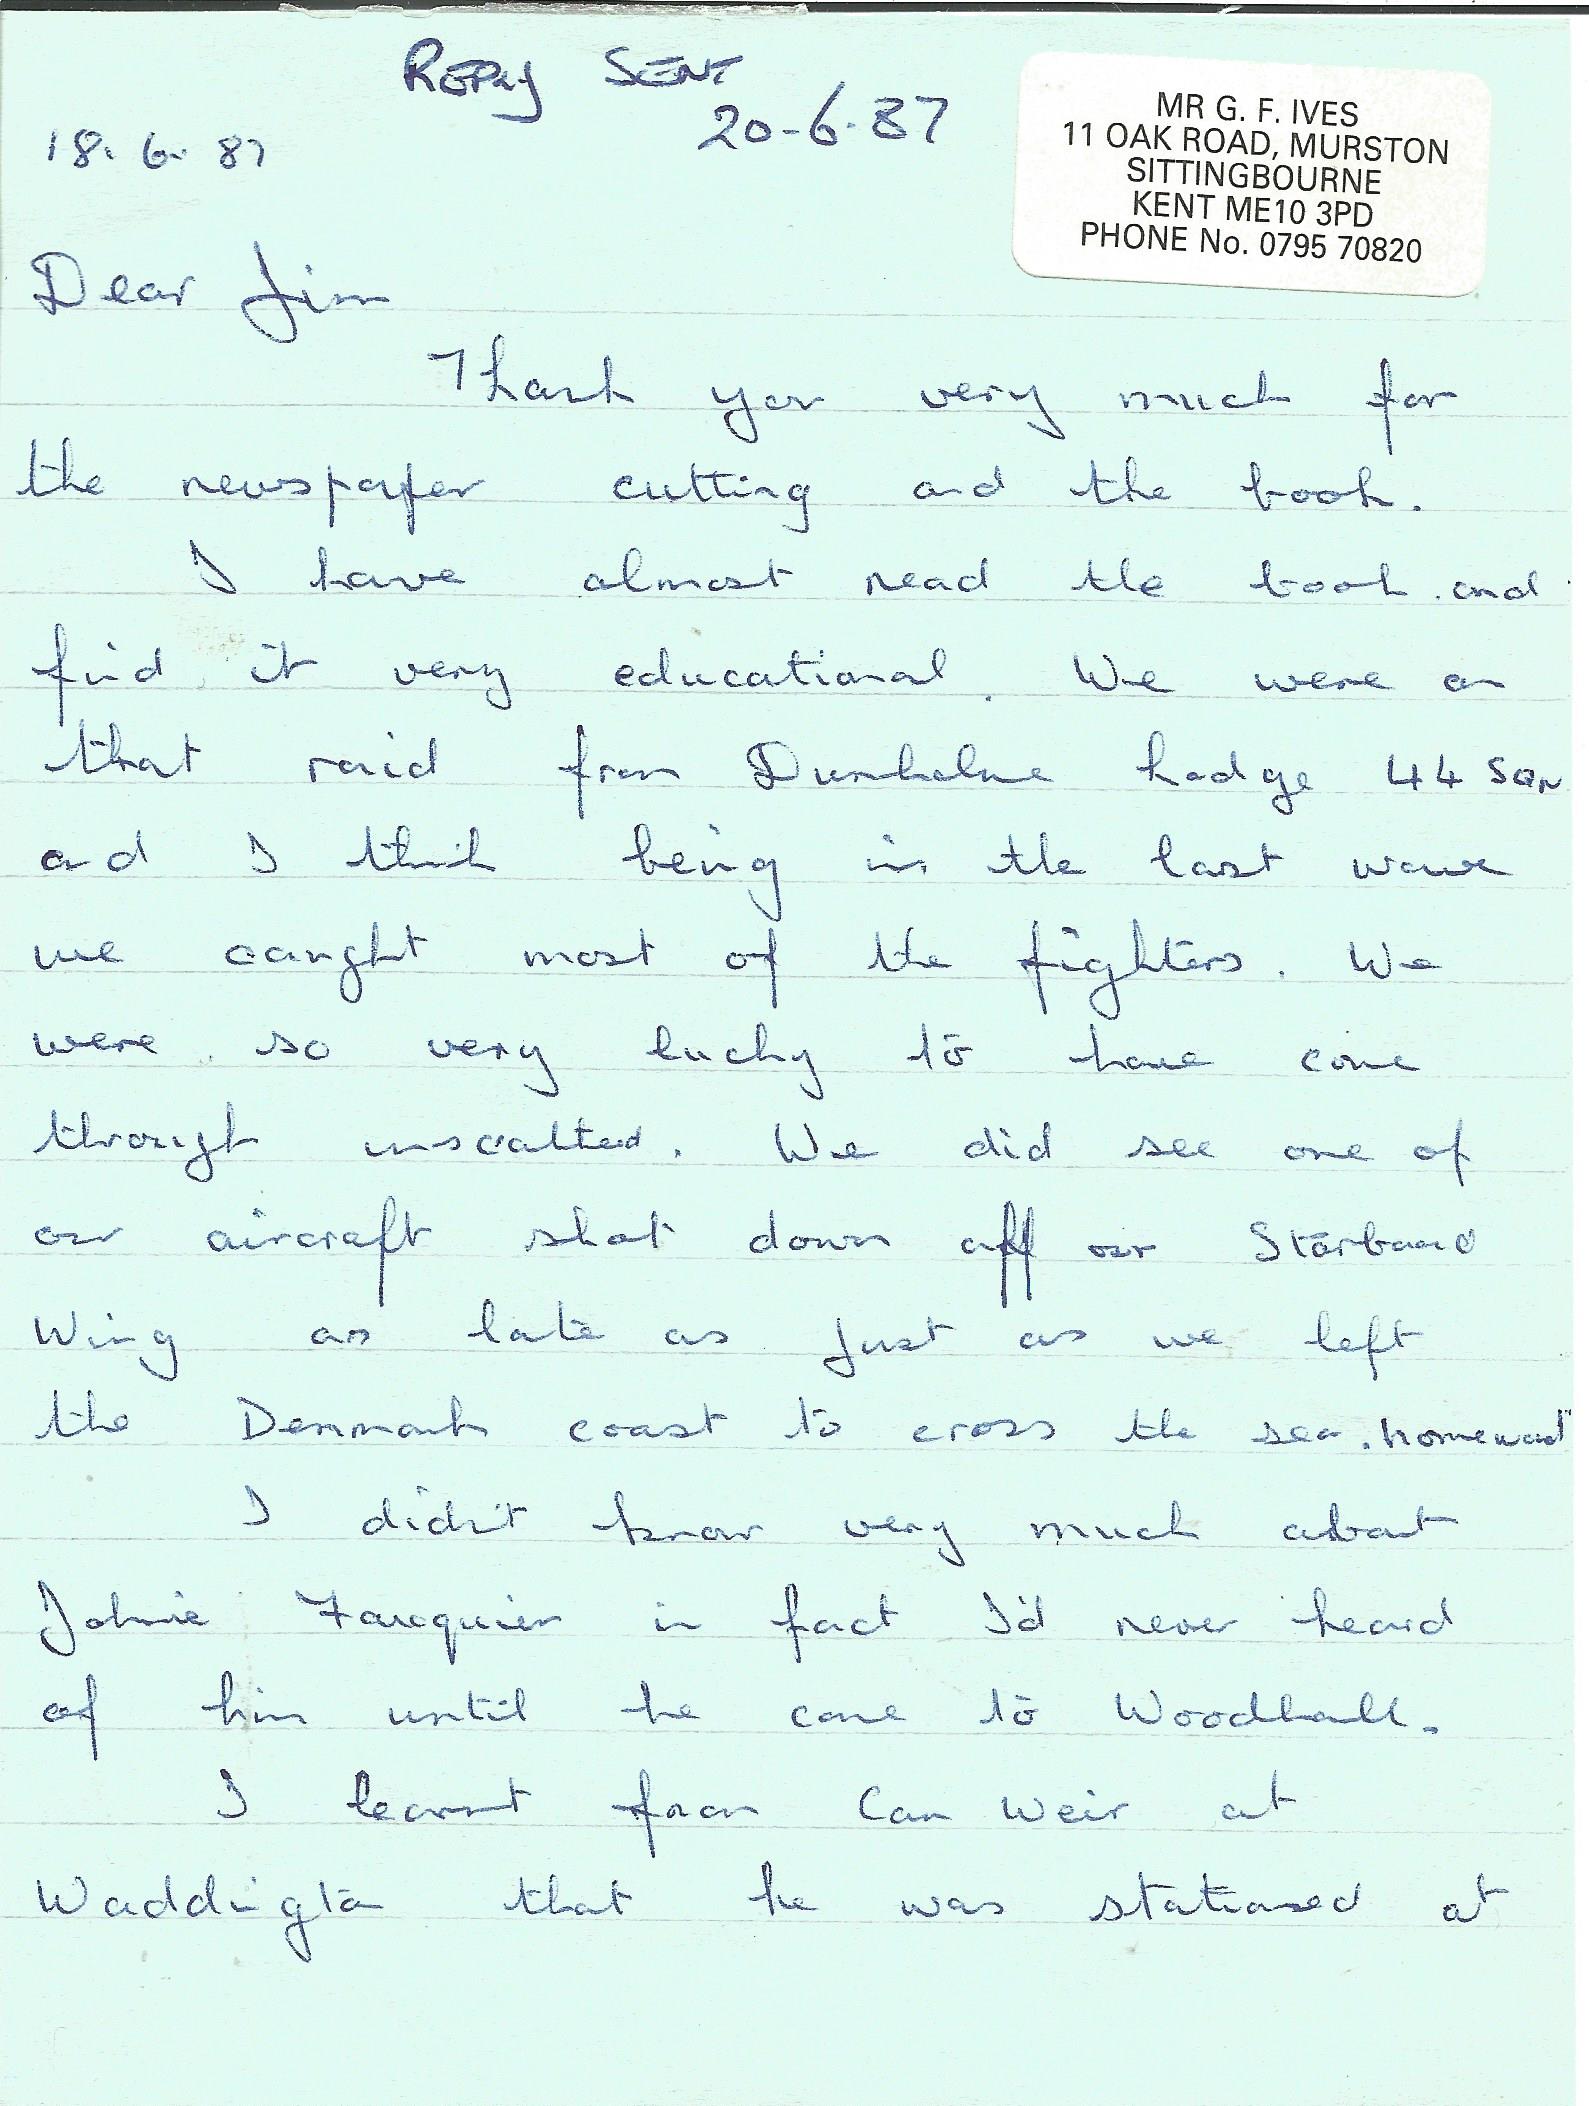 Reply Sent
20-6-87
18. 6. 87
MR G. F. IVES
11 OAK ROAD, MURSTON
SITTINGBOURNE
KENT ME10 3PD
PHONE No. 0795 70820
Dear Jim
Thank you very much for
the newspaper cutting and the book.
I have almost read the book and
find it very educational. We were on
that raid from Dunholme Lodge 44 SQN
and I think being in the last wave
we caught most of the fighters. We
were so very lucky to have come
through unscathed. We did see one of
our aircraft shot down off our Starboard
Wing as late as just as we left
the Denmark coast to cross the sea. homeward"
I didn't know very much about
Johnie Fauquier in fact I'd never heard
of him until he came to Woodhall.
I learnt from Cam Weir at
Waddington that he was stationed at